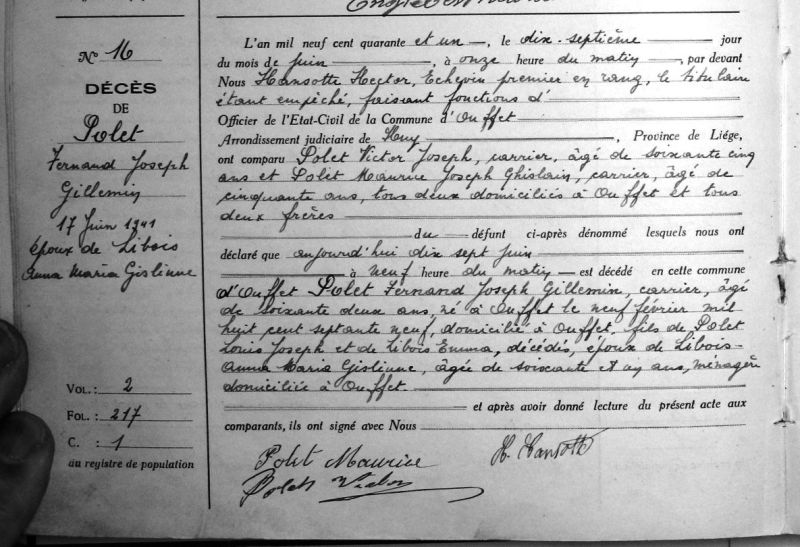 No 16
DÉCÈS
DE
Polet
Fernand Joseph
Gillemin
17 Juin 1941
époux de Libois
Anna Maria Gislinne
VOL. : 2
FOL. : 217
C. : 1
au registre de population
L'an mil neuf cent quarante et un, le dix-septième jour
du mois de juin, à onze heure du matin, par devant
Nous Hansotte Hector, Echevin premier en rang, le titulaire
étant empêché, faisant fonctions d'
Officier de l'Etat-Civil de la Commune d'Ouffet
Arrondissement judiciaire de Huy, Province de Liége,
ont comparu Polet Victor Joseph, carrier, âgé de soixante cinq
ans et Polet Maurice Joseph Ghislain, carrier, âgé de
cinquante ans, tous deux domiciliés à Ouffet et tous
deux frères
du défunt ci-après dénommé lesquels nous ont
déclaré que aujourd'hui dix sept juin
à neuf heure du matin est décédé en cette commune
d'Ouffet Polet Fernand Joseph Gillemin, carrier, âgé
de soixante deux ans, né à Ouffet le neuf février mil
huit cent septante neuf, domicilié à Ouffet, fils de Polet
Louis Joseph et de Libois Emma, décédés, époux de Libois-
Anna Maria Gislinne, âgée de soixante et un ans, ménagère
domiciliée à Ouffet
et après avoir donné lecture du présent acte aux
comparants, ils ont signé avec Nous
Polet Maurice
H. Hansotte
Polet Victor